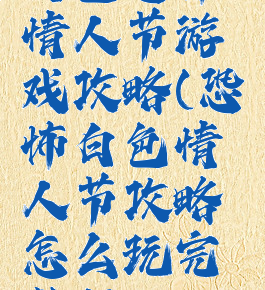 情人节游
戏攻略(恐
怖白色情
人节攻略
怎么玩完